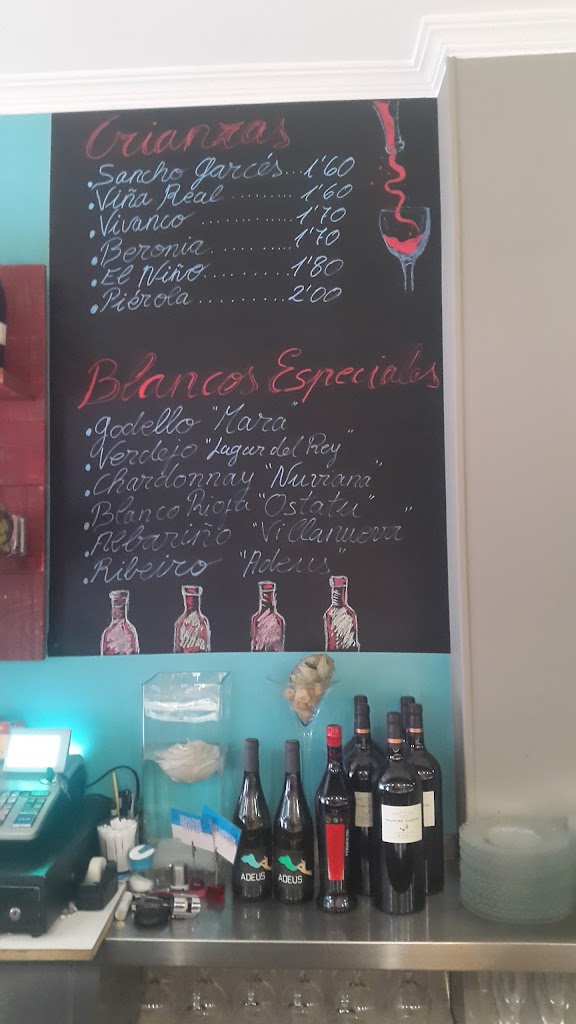 Crianzas
.Sancho Garcés...1'60
.Viña Real ........1'60
.Vivanco ............1'70
.Beronia..........1'70
.El Niño.........1'80
.Piérola..........2'00
Blancos Especiales
.Godello "Mara"
.Verdejo "Lagar del Rey"
.Chardonnay "Nuviana"
.Blanco Rioja "Ostatu"
.Albariño "Villanueva"
.Ribeiro "Adeus"
ADEUS
ADEUS